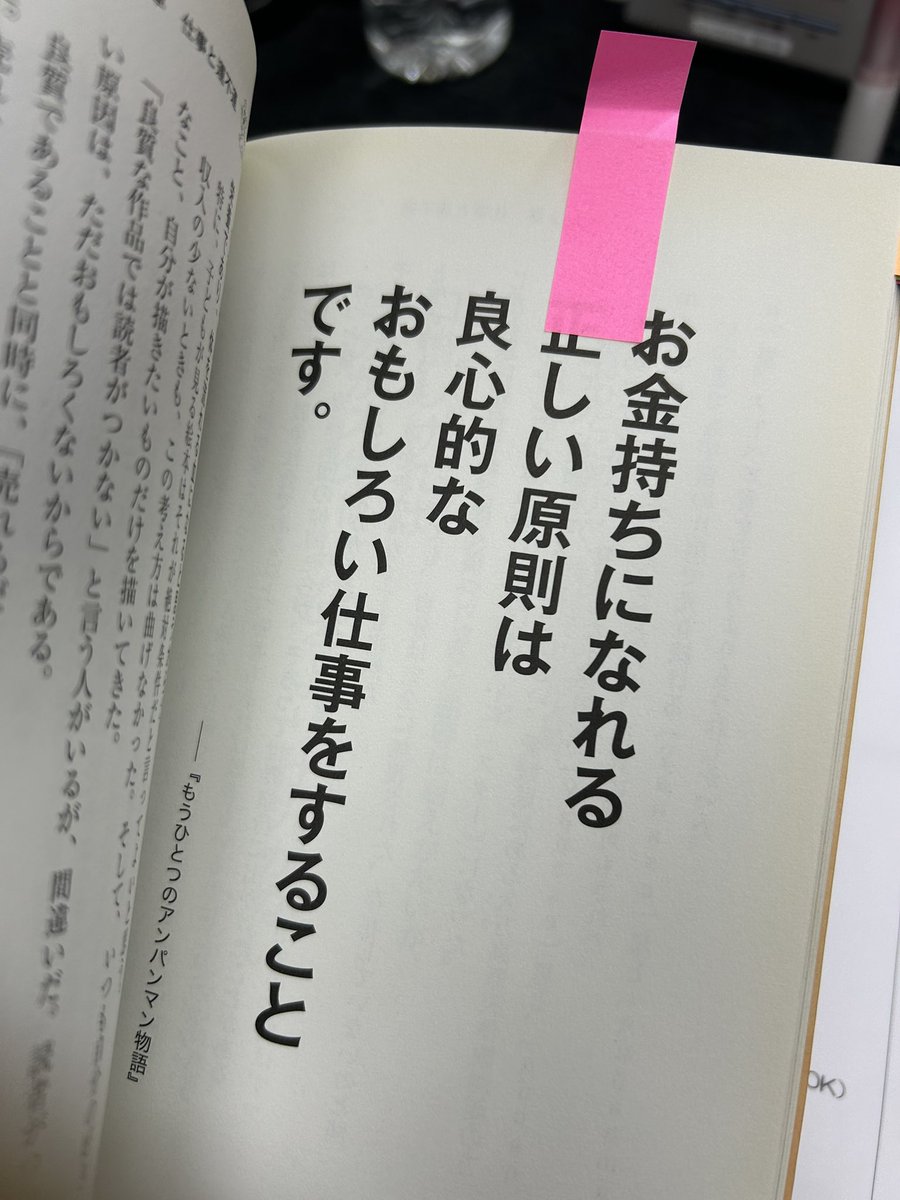 お金持ちになれる
正しい原則は
良心的な
おもしろい仕事をすること
です。
──『もうひとつのアンパンマン物語』
仕事と運不運
収入の少ないときも、この考え方は曲げなかった。そして、いつ
なこと、自分が描きたいものだけを描いてきた。
「良質な作品では読者がつかない」と言う人がいるが、間違いだ。
い原因は、ただおもしろくないからである。
良質であることと同時に、「売れる
OK)